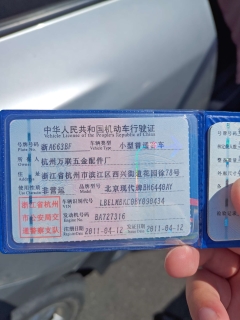 中华人民共和国机动车行驶证
Vehicle License of the People's Republic of China
号牌号码 新A663BF 车辆类型 小型普通客车
Plate No. Vehicle Type
所有人 杭州万联五金配件厂
住址 浙江省杭州市滨江区西兴街道花园徐78号
使用性质 非营运 品牌型号 北京现代牌BH6440AY
浙江省杭州市公安局交通警察支队
车辆识别代号
VIN
发动机号码 BA727316
Engine No.
注册日期 2011-04-12 发证日期 2011-04-12